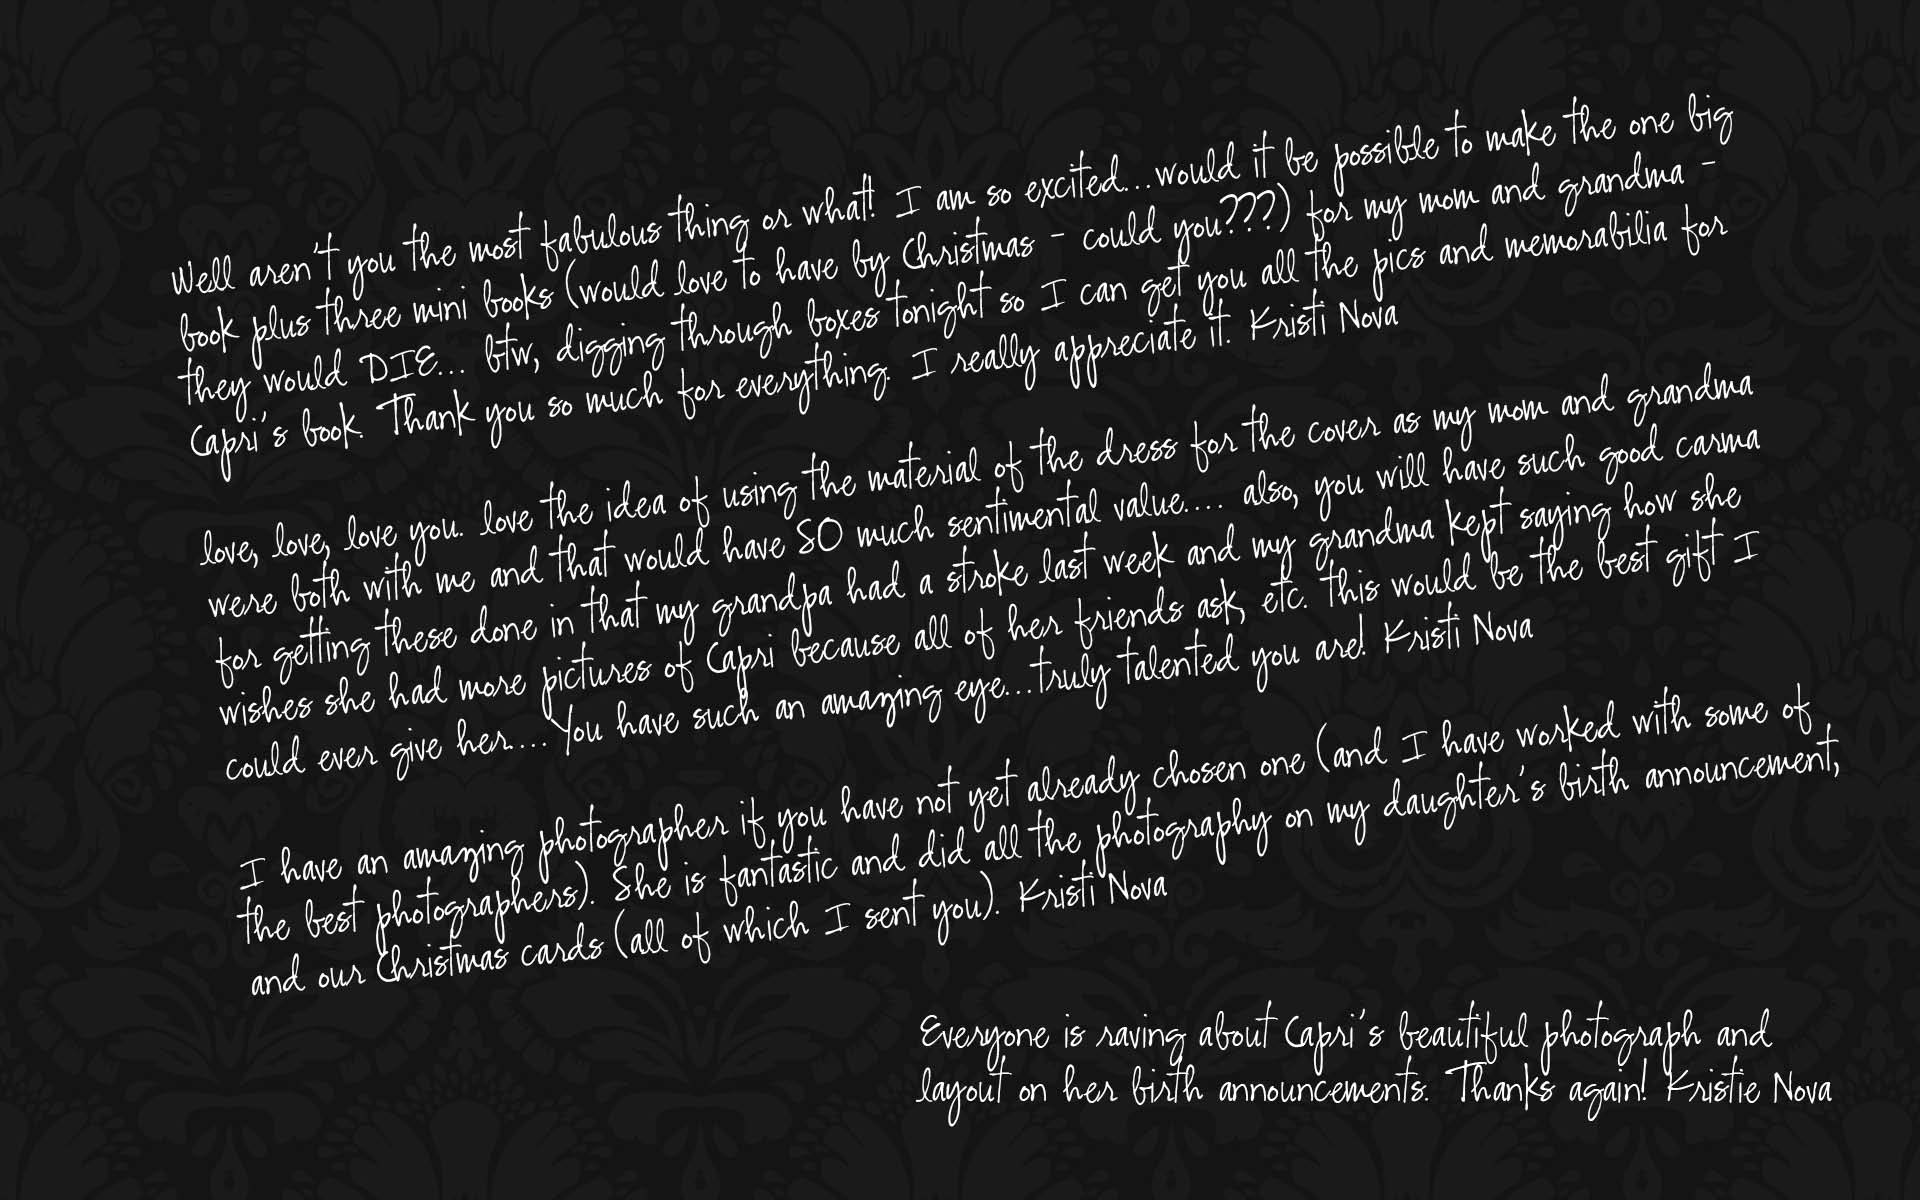 Well aren't you the most fabulous thing or what! I am so excited...would it be possible to make the one big
book plus three mini books (would love to have by Christmas - could you???) for my mom and grandma -
they would DIE... btw, digging through boxes tonight so I can get you all the pics and memorabilia for
Capri's book. Thank you so much for everything. I really appreciate it. Kristi Nova
love, love, love you. love the idea of using the material of the dress for the cover as my mom and grandma
were both with me and that would have SO much sentimental value.... also, you will have such good carma
for getting these done in that my grandpa had a stroke last week and my grandma kept saying how she
wishes she had more pictures of Capri because all of her friends ask, etc. this would be the best gift I
could ever give her....You have such an amazing eye...truly talented you are! Kristi Nova
I have an amazing photographer if you have not yet already chosen one (and I have worked with some of
the best photographers). She is fantastic and did all the photography on my daughter's birth announcement,
and our Christmas cards (all of which I sent you). Kristi Nova
Everyone is raving about Capri's beautiful photograph and
layout on her birth announcements. Thanks again! Kristie Nova